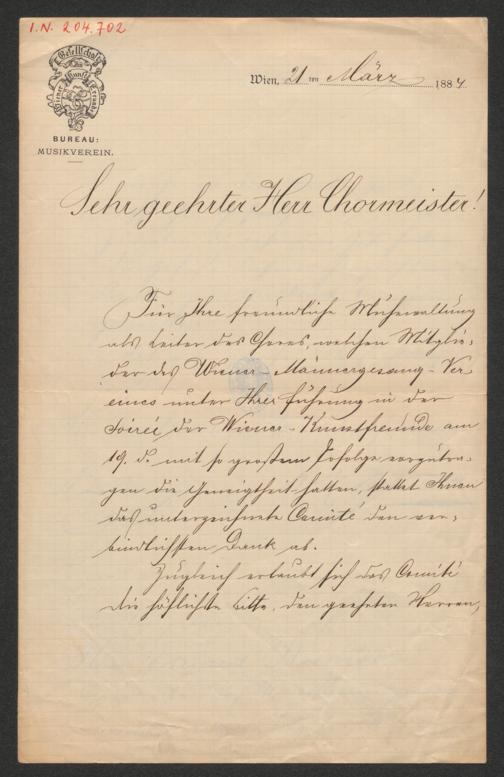 I.N. 204.702
Gesellschaft
der
Wiener Kunst Freunde
BUREAU:
MUSIKVEREIN.
Wien, 21 ten März 1884
Sehr geehrter Herr Chormeister!
Für Ihre freundliche Mühewaltung
als Leiter des Chores, welchen Mitglie-
der des Wiener Männergesang-Ver
eines unter Ihrer Führung in der
Soirée der Wiener-Kunstfreunde am
19. d. mit so großem Erfolge vorzutra-
gen die Geneigtheit hatten, stattet Ihnen
das unterzeichnete Comité den ver-
bindlichsten Dank ab.
Zugleich erlaubt sich das Comité
die höflichste Bitte, den geehrten Herren,